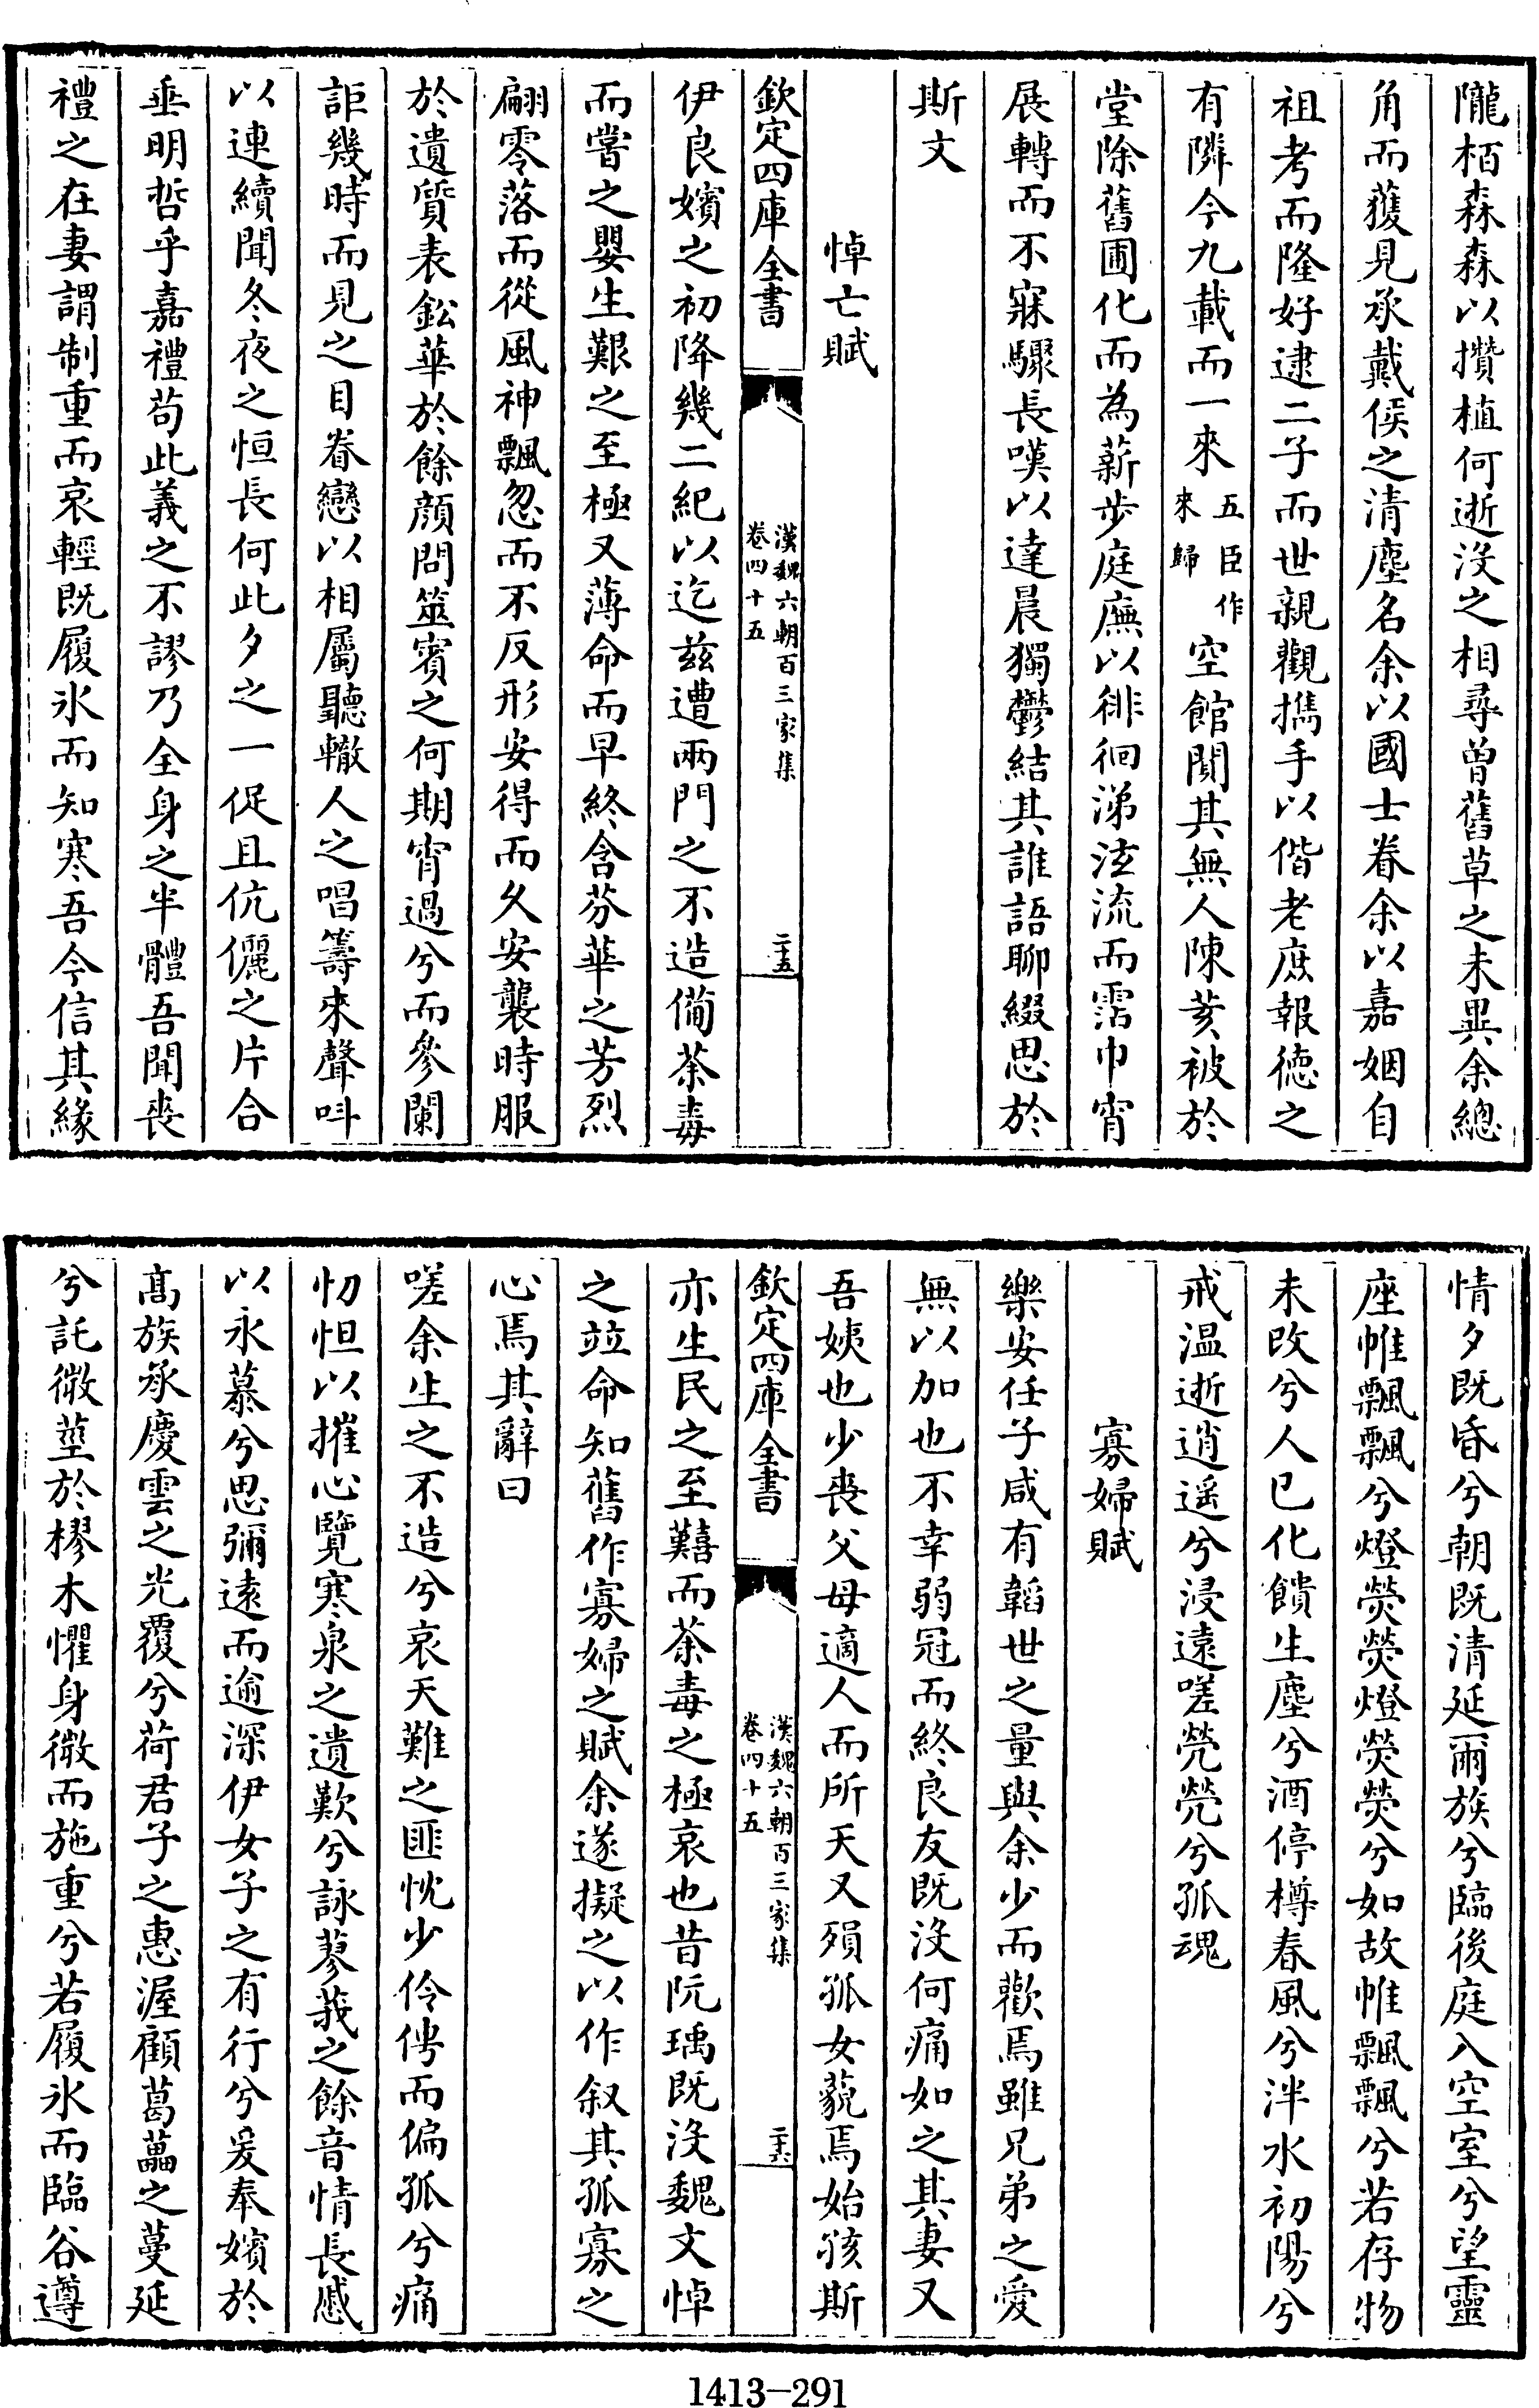 隴栢森森以攢植何逝没之相尋曽舊草之未異余總
角而獲見承戴侯之清塵名余以國士眷余以嘉姻自
祖考而隆好逮二子而世親觀携手以偕老庶報徳之
有隣今九載而一來五臣作來歸空館闃其無人陳荄被於
堂除舊圃化而為薪步庭廡以徘徊涕泫流而霑巾宵
展轉而不寐驟長嘆以達晨獨鬱結其誰語聊綴思於
斯文
悼亡賦
欽定四庫全書
漢魏六朝百三家集
卷四十五
二十五
伊良嬪之初降幾二紀以迄兹遭兩門之不造備荼毒
而嘗之嬰生艱之至極又薄命而早終含芬華之芳烈
翩零落而從風神飄忽而不反形安得而久安襲時服
於遺質表鉛華於餘顔問筮賓之何期宵過兮而參闌
詎幾時而見之目眷戀以相屬聽轍人之唱籌來聲呌
以連續聞冬夜之恒長何此夕之一促且伉儷之片合
垂明哲乎嘉禮苟此義之不謬乃全身之半體吾聞喪
禮之在妻謂制重而哀輕既履冰而知寒吾今信其緣
情夕既昏兮朝既清延爾族兮臨後庭入空室兮望靈
座帷飄飄兮燈熒熒燈熒熒兮如故帷飄飄兮若存物
未改兮人已化饋生塵兮酒停樽春風兮泮水初陽兮
戒温逝逍遥兮浸遠嗟煢煢兮孤魂
寡婦賦
樂安任子咸有韜世之量與余少而歡焉雖兄弟之愛
無以加也不幸弱冠而終良友既没何痛如之其妻又
吾姨也少喪父母適人而所天又殞孤女藐焉始孩斯
欽定四庫全書
漢魏六朝百三家集
卷四十五
二十六
亦生民之至艱而荼毒之極哀也昔阮瑀既没魏文悼
之竝命知舊作寡婦之賦余遂擬之以作叙其孤寡之
心焉其辭曰
嗟余生之不造兮哀天難之匪忱少伶俜而偏孤兮痛
忉怛以摧心覽寒泉之遺歎兮詠蓼莪之餘音情長慼
以永慕兮思彌遠而逾深伊女子之有行兮爰奉嬪於
髙族承慶雲之光覆兮荷君子之惠渥顧葛藟之蔓延
兮託微莖於樛木懼身微而施重兮若履冰而臨谷遵
1413—291